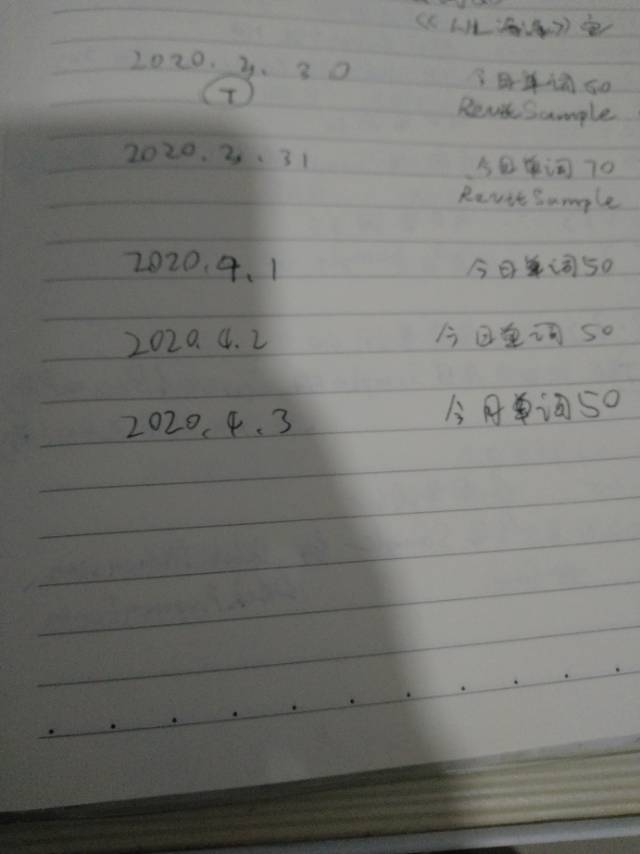 2020.3.30 今日单词50
T Revit Sample
2020.3.31 今日单词70
Revit Sample
2020.4.1 今日单词50
2020.4.2 今日单词50
2020.4.3 今日单词50